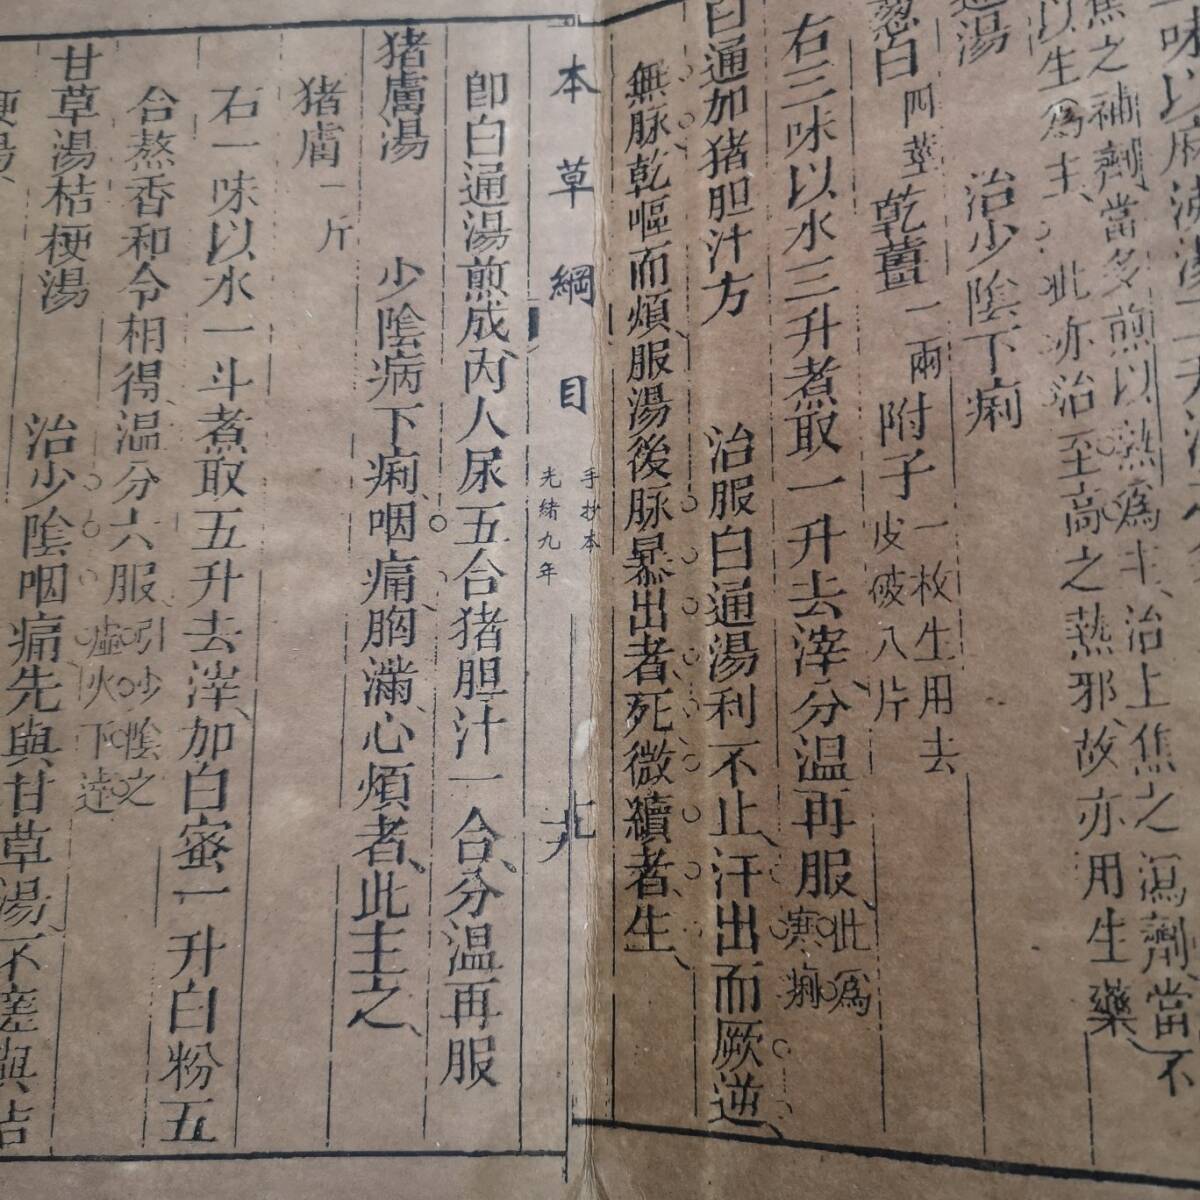 焦之補劑當多煎以熟為主、治上焦之瀉劑當不
以生為主、此亦治至高之熱邪故亦用生藥、
通湯 治少陰下痢
葱白四莖 乾薑一兩 附子一枚生用去皮破八片
右三味以水三升煮取一升去滓、分温再服、此為寒痢
白通加猪胆汁方 治服白通湯利不止、汗出而厥逆、
無脉乾嘔而煩、服湯後脉暴出者、死、微續者、生、
本草綱目
手抄本
光緒九年
即白通湯煎成、内人尿五合猪胆汁一合、分温再服
猪膚湯 少陰病下痢、咽痛、胸滿、心煩者、此主之、
猪膚一斤
右一味以水一斗煮取五升去滓、加白蜜一升白粉五
合熬香和令相得、温分六服、引少陰之虛火下達
甘草湯桔梗湯 治少陰咽痛先與甘草湯、不差與桔
梗湯、